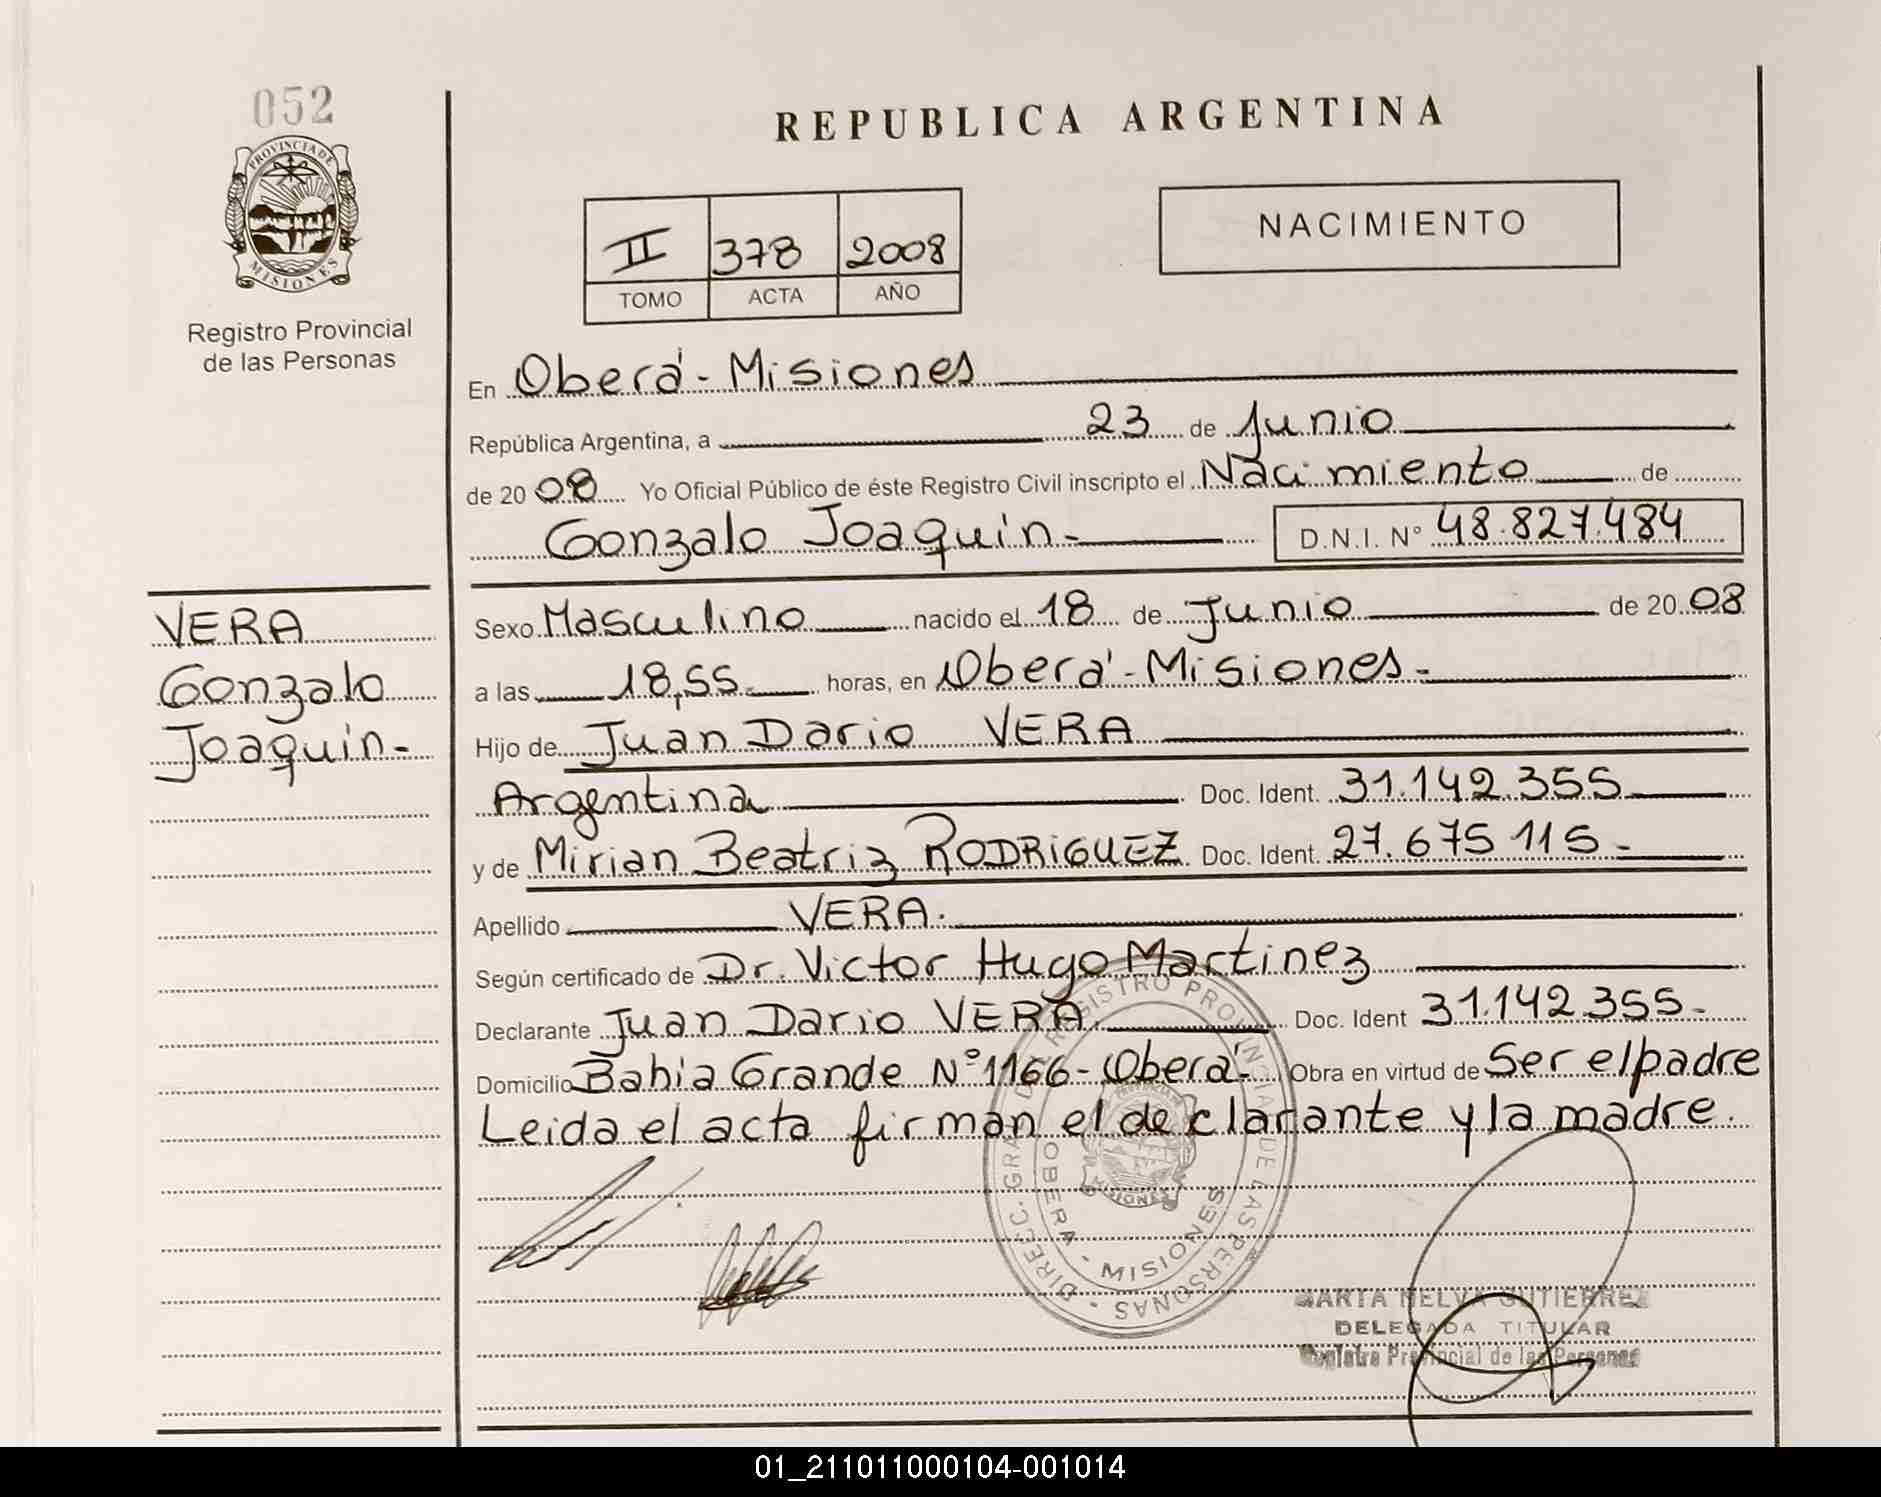 052
PROVINCIA DE
MISIONES
Registro Provincial
de las Personas
VERA
Gonzalo
Joaquin-
REPUBLICA ARGENTINA
II 378 2008
TOMO ACTA AÑO
NACIMIENTO
En Oberá - Misiones
República Argentina, a 23 de Junio
de 20 08 Yo Oficial Público de éste Registro Civil inscripto el Nacimiento de
Gonzalo Joaquin- D.N.I. N° 48.827.484
Sexo Masculino nacido el 18 de Junio de 20 08
a las 18,55 horas, en Oberá - Misiones-
Hijo de Juan Dario VERA
Argentina Doc. Ident. 31.142.355
y de Mirian Beatriz RODRIGUEZ Doc. Ident. 27.675 115-
Apellido VERA.
Según certificado de Dr. Victor Hugo Martinez
Declarante Juan Dario VERA Doc. Ident 31.142.355-
Domicilio Bahia Grande N° 1166- Oberá- Obra en virtud de Ser el padre
Leida el acta firman el declarante y la madre.
DIRECC. GRAL. DEL REGISTRO PROVINCIAL DE LAS PERSONAS
OBERA - MISIONES
MISIONES
MARTA NELVA GUTIERREZ
DELEGADA TITULAR
Registro Provincial de las Personas
01_211011000104-001014